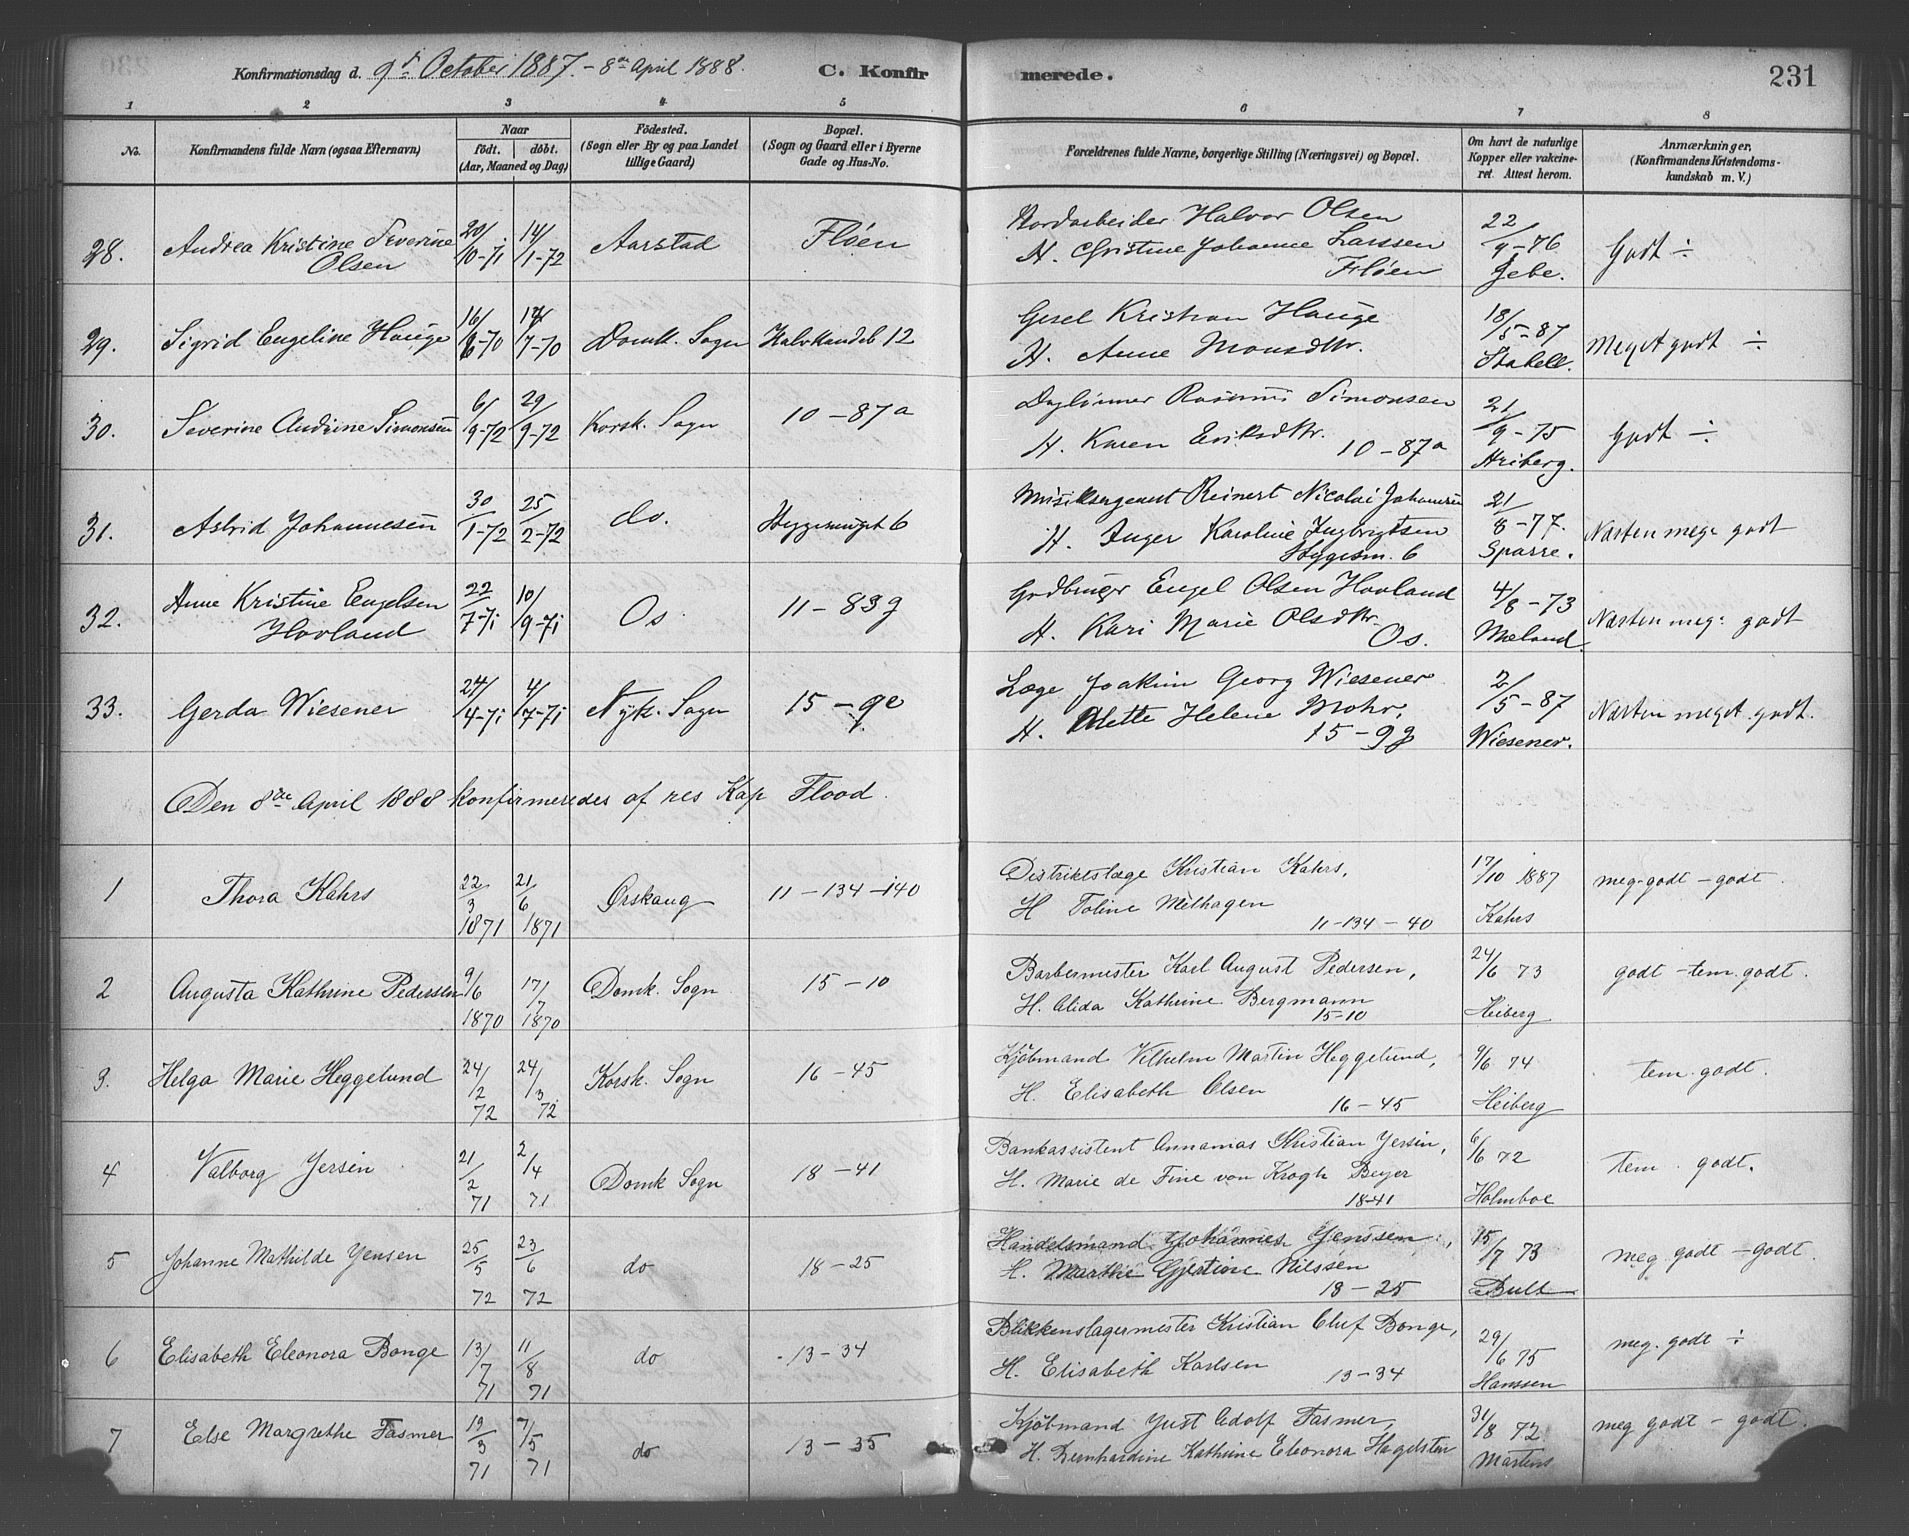 Konfirmationsdag d. 9de October 1887. – 8de April 1888. C. Konfirmerede. 231
1 2 3 4 5 6 7 8
No. Konfirmandens fulde Navn (ogsaa Efternavn) Naar födt. döbt. (Aar, Maaned og Dag) Födested. (Sogn eller By og paa Landet tillige Gaard) Bopæl. (Sogn og Gaard eller i Byerne Gade og Hus-No. Forældrenes fulde Navne, borgerlige Stilling (Næringsvei) og Bopæl. Om havt de naturlige Kopper eller vakcineret. Attest herom. Anmærkninger, (Konfirmandens Kristendomskundskab m. V.)
28. Andrea Kristine Severine Olsen 20/10-71 14/1-72 Aarstad Flöen
Jordarbeider Halvor Olsen
H. Christine Johanne Larssen
Flöen
22/9-76 Jebe. Godt ÷
29. Sigrid Engeline Hauge 16/6-70 17/7-70 Domk. Sogn Kalvhandeb 12
Gesel Kristian Hauge
H. Anne Monsdtr.
18/5-87 Stabell. Meget godt ÷
30. Severine Andrine Simonsen 6/9-72 29/9-72 Korsk. Sogn 10-87a
Daglönner Rasmus Simonsen
H. Karen Eriksdtr. 10-87a
21/9-75 Heiberg. Godt ÷
31. Astrid Johannesen 30/1-72 25/2-72 do. Hyggesmuget 6
Musiksergeant Reinert Nicolai Johannesen
H. Inger Karoline Ingbrigtsen
Hygesm. 6
21/8-77. Sparre. Næsten meg. godt
32. Anne Kristine Engelsen Hovland 22/7-71 10/9-71 Os. 11-83g
Gdbruger Engel Olsen Hovland
H. Kari Marie Olsdtr. Os.
4/8-73 Mæland. Næsten meg. godt
33. Gerda Wiesener 24/4-71 4/7-71 Nyk. Sogn 15-9e
Læge Joakim Georg Wiesener
H. Mette Helene Mohr,
15-9g
2/5-87 Wiesener. Næsten meget godt.
Den 8de April 1888 konfirmeredes af res Kap Flood.
1 Thora Kahrs 22/3 1871 21/6 1871 Ørskaug 11-134-140
Distriktslæge Kristian Kahrs,
H Toline Methagen
11-134-40
17/10 1887 Kahrs meg. godt – godt.
2 Augusta Kathrine Pedersen 9/6 1870 17/7 1870 Domk. Sogn 15-10
Barbermester Karl August Pedersen,
H. Alida Kathrine Bergmann
15-10
24/6 73 Heiberg godt – tem. godt.
3. Helga Marie Heggelund 24/2 72 24/3 72 Korsk. Sogn 16-45
Kjöbmand Vilhelm Martin Heggelund,
H. Elisabeth Olsen
16-45
9/6 74 Heiberg tem. godt.
4 Valborg Jersin 21/2 71 2/4 71 Domk Sogn 18-41
Bankassistent Annanias Kristian Jersin,
H. Marie de Fine von Krogh Beyer
18-41
6/6 72 Holmboe tem. godt.
5 Johanne Mathilde Jensen 25/5 72 23/6 72 do 18-25
Handelsmand Johannes Jenssen,
H. Marthe Gjertine Nilssen
18-25
15/7 73 Bull meg. godt – godt
6 Elisabeth Eleonora Bonge 13/7 71 11/8 71 do 13-34
Blikkenslagermester Kristian Oluf Bonge,
H. Elisabeth Karlsen
13-34
29/6 75 Hanssen meg. godt ÷
7 Else Margrethe Fasmer 19/3 71 7/5 71 do 13-35
Kjöbmand Just Adolf Fasmer,
H. Bernhardine Kathrine Eleonora Hagelsten
31/8 72 Martens meg godt – godt.